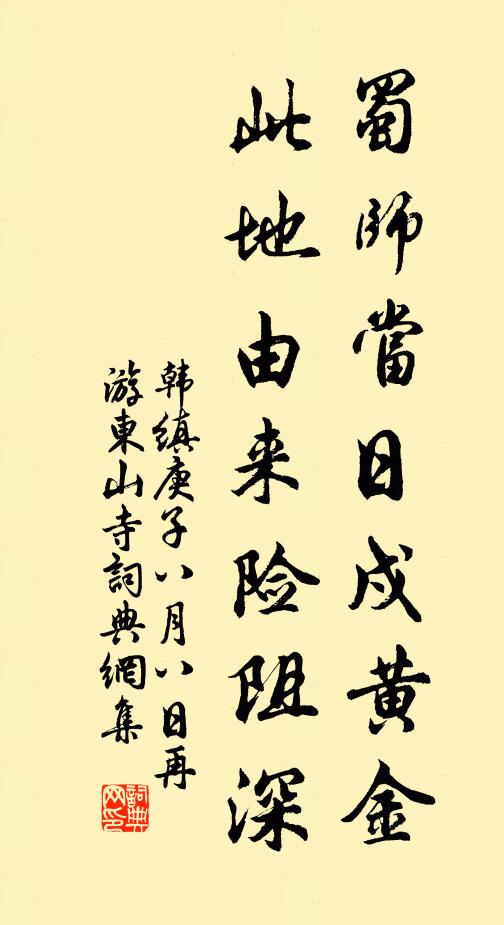 蜀師當日戍黄金
此地由来险阻深
韩缜庚子八月八日再
游東山寺詞典網集
詞典
网印